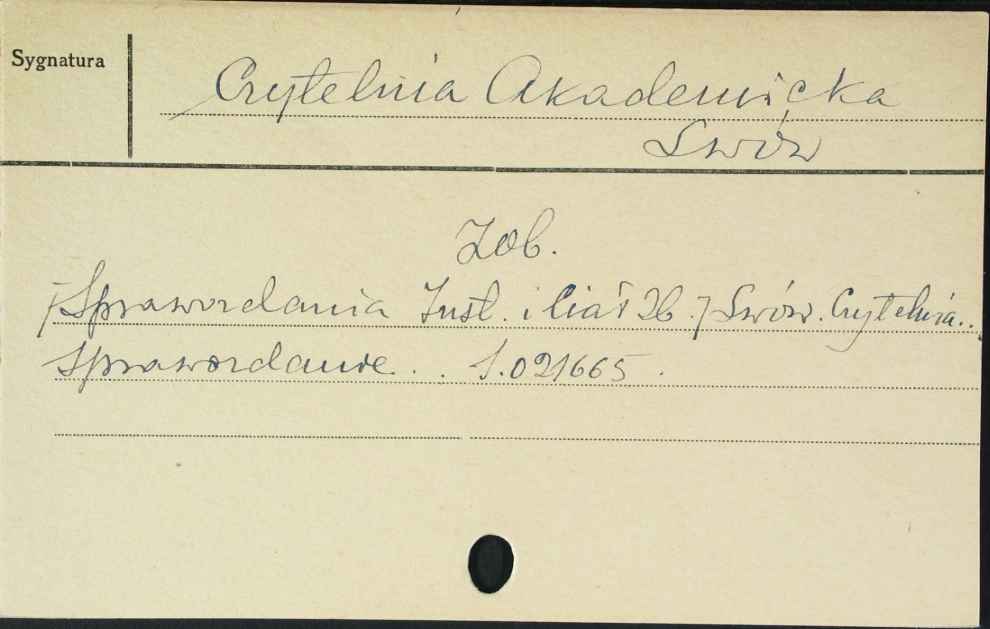 Sygnatura
Czytelnia Akademicka
Lwów
Zob.
[Sprawozdania Inst. i 26.] Lwów. Czytelnia..
Sprawozdanie . . S.021665 .